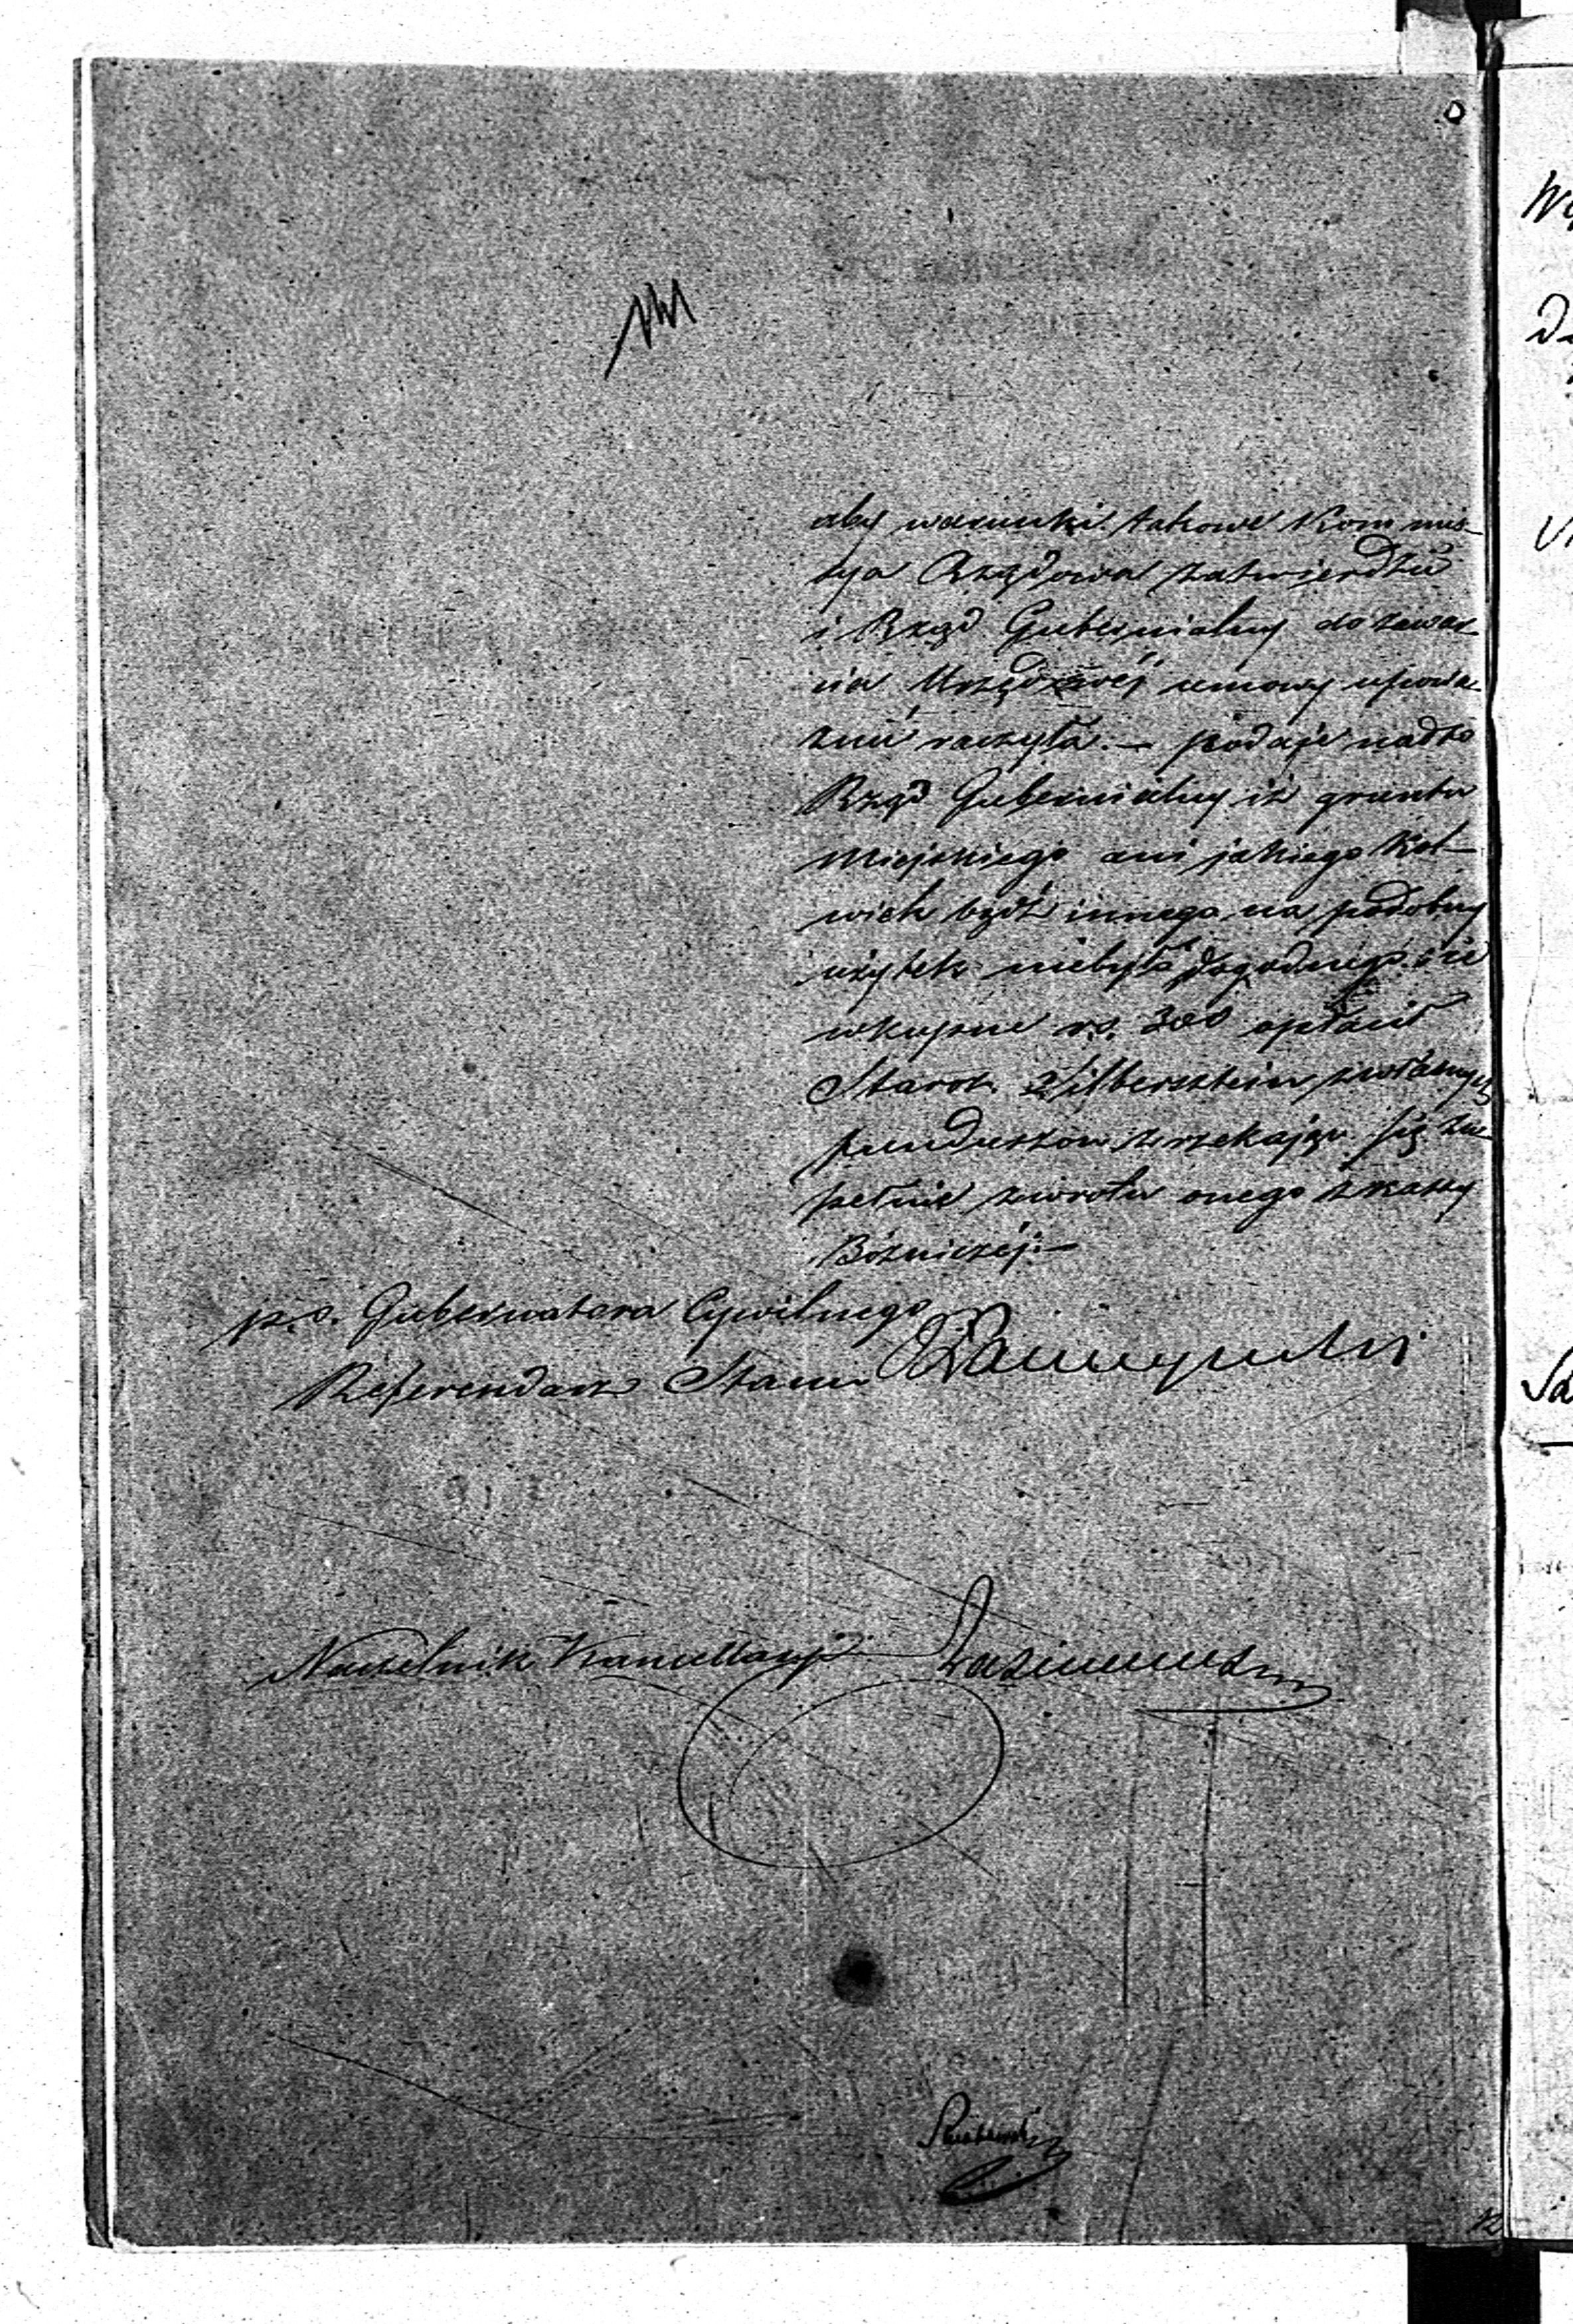 aby warunki takowe Kommis-
sya Rządowa zatwierdzić
i Rząd Gubernialny do zawar-
cia Urzędowéj umowy upowa-
żnić raczyła. — podaje nadto
Rząd Gubernialny iż gruntu
Miejskiego ani jakiego kol-
wiek bądź innego na podobny
użytek niebyło dogodnego. i że
wkupne rs. 300 opłacił
Starok. Zilbersztein z własnych
funduszów zrzekając się zu-
pełnie zwrotu onego z kassy
Bóżniczéj. —
p.o. Gubernatora Cywilnego
Referendarz Stanu
Naczelnik Kancellaryi